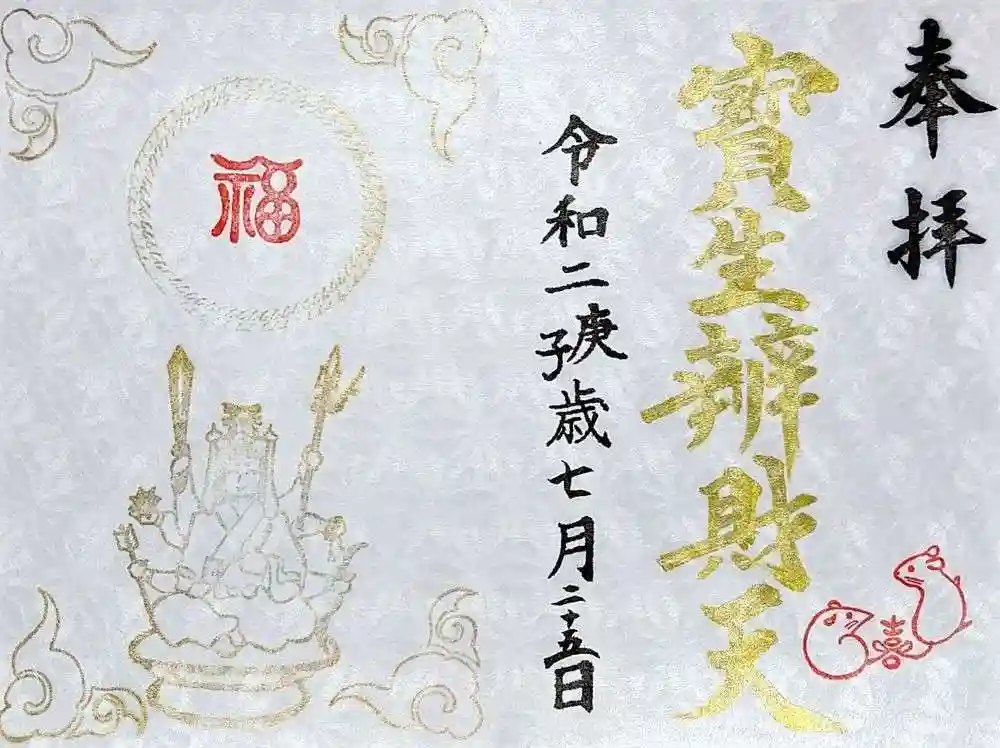 奉拝
寶生辨財天
喜
令和二庚子歳七月二十五日
福